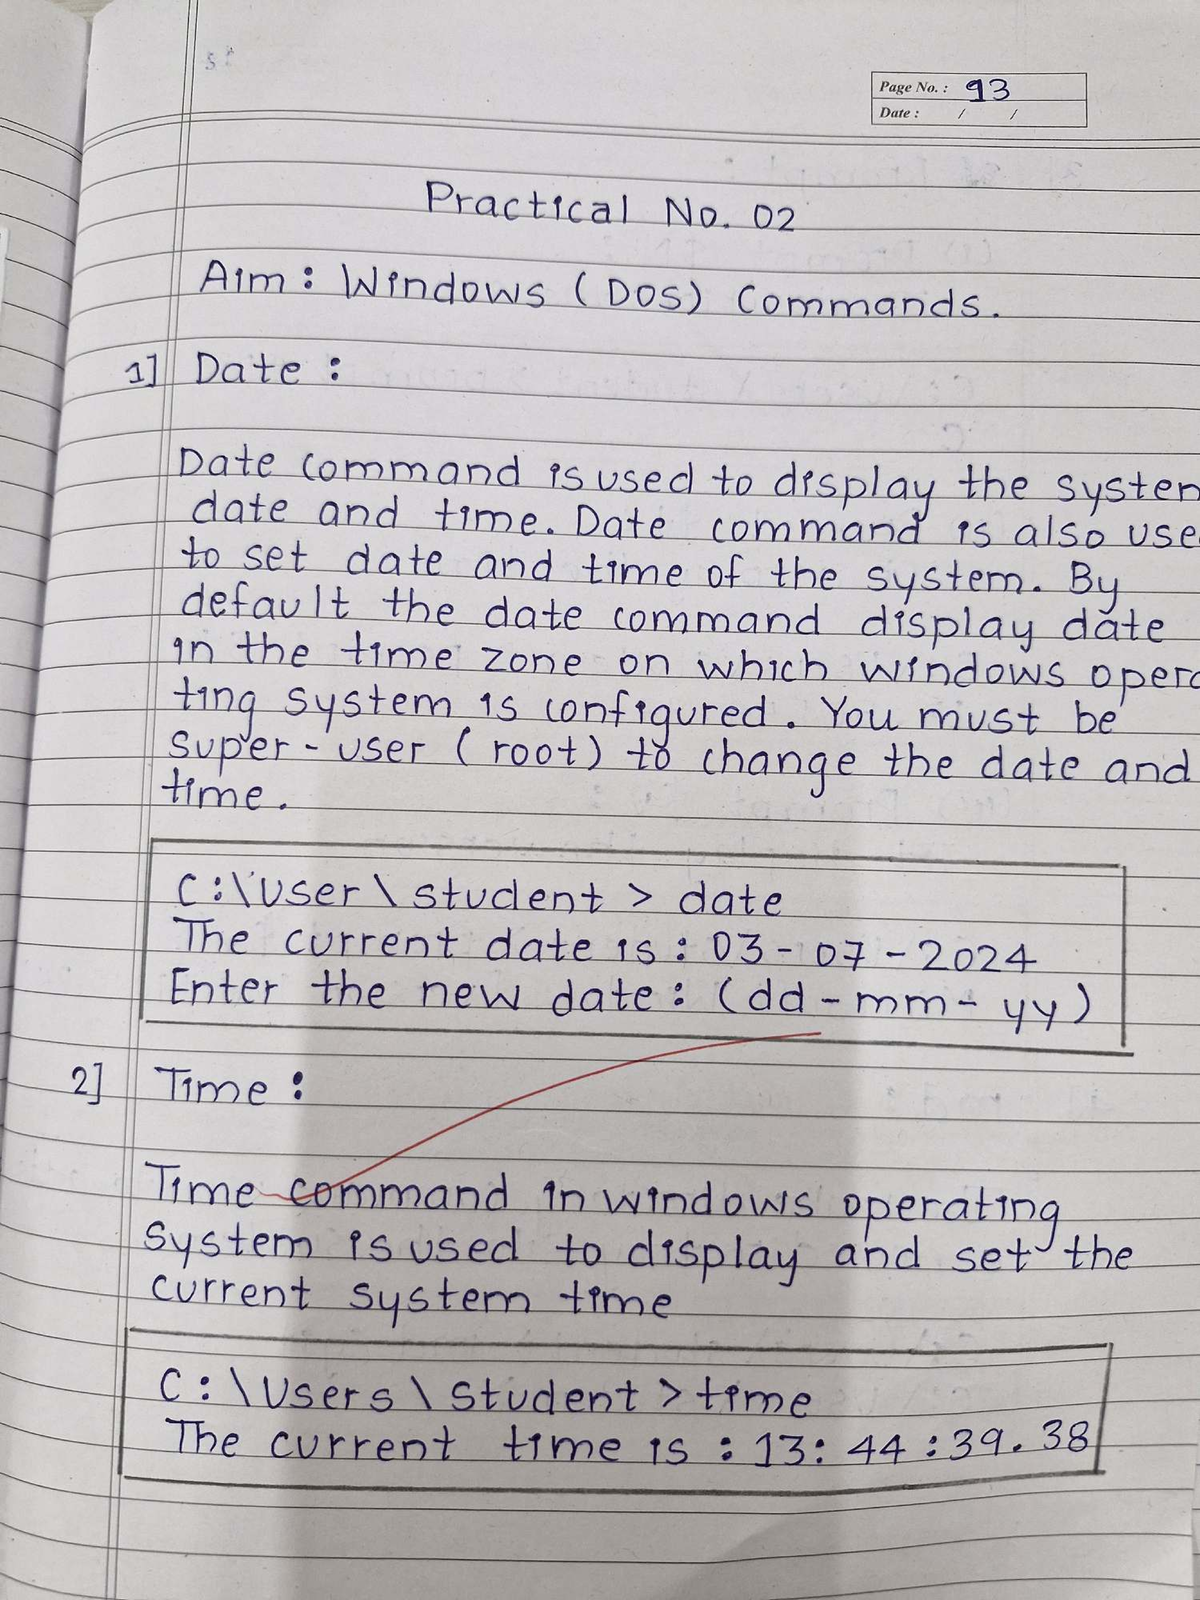 Page No. : 93
Date : / /
Practical No. 02
Aim : Windows (DOS) Commands.
1] Date :
Date command is used to display the system
date and time. Date command is also use
to set date and time of the system. By
default the date command display date
in the time zone on which windows opera
ting system is configured. You must be
super-user (root) to change the date and
time.
C:\User\student > date
The current date is : 03-07-2024
Enter the new date : (dd-mm-yy)
2] Time :
Time command in windows operating
system is used to display and set the
current system time
C:\Users\Student > time
The current time is : 13:44:39.38